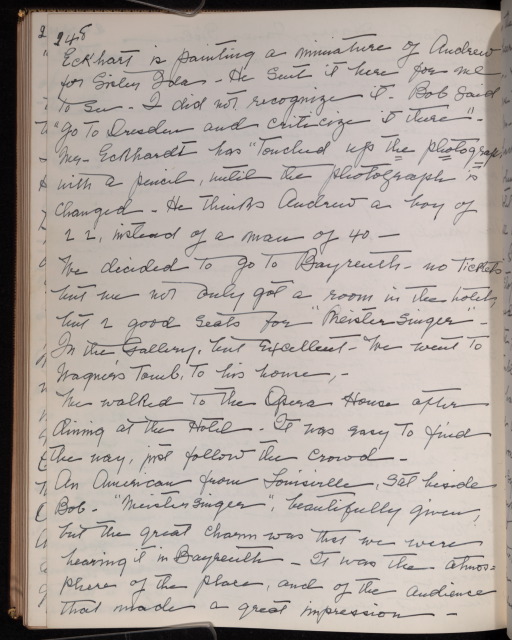 245
Eckhart is painting a miniature of Andrew
for Sister Ida - He sent it here for me
to see - I did not recognize it - Bob said
"Go to Dresden and criticize it there" -
Mr. Eckhardt has "touched up the photograph
with a pencil, until the photograph is
changed - He thinks Andrew a boy of
22, instead of a man of 40 -
We decided to go to Bayreuth - no tickets -
but we not only got a room in the hotel,
but 2 good seats for "Meistersinger" -
In the Gallery, but excellent - We went to
Wagner's Tomb, to his house, -
We walked to the Opera House after
dining at the Hotel - It was easy to find
the way, just follow the crowd -
An American from Louisville, sat beside
Bob - "Meistersinger", beautifully given,
but the great charm was that we were
hearing it in Bayreuth - It was the atmos=
phere of the place, and of the audience
that made a great impression -